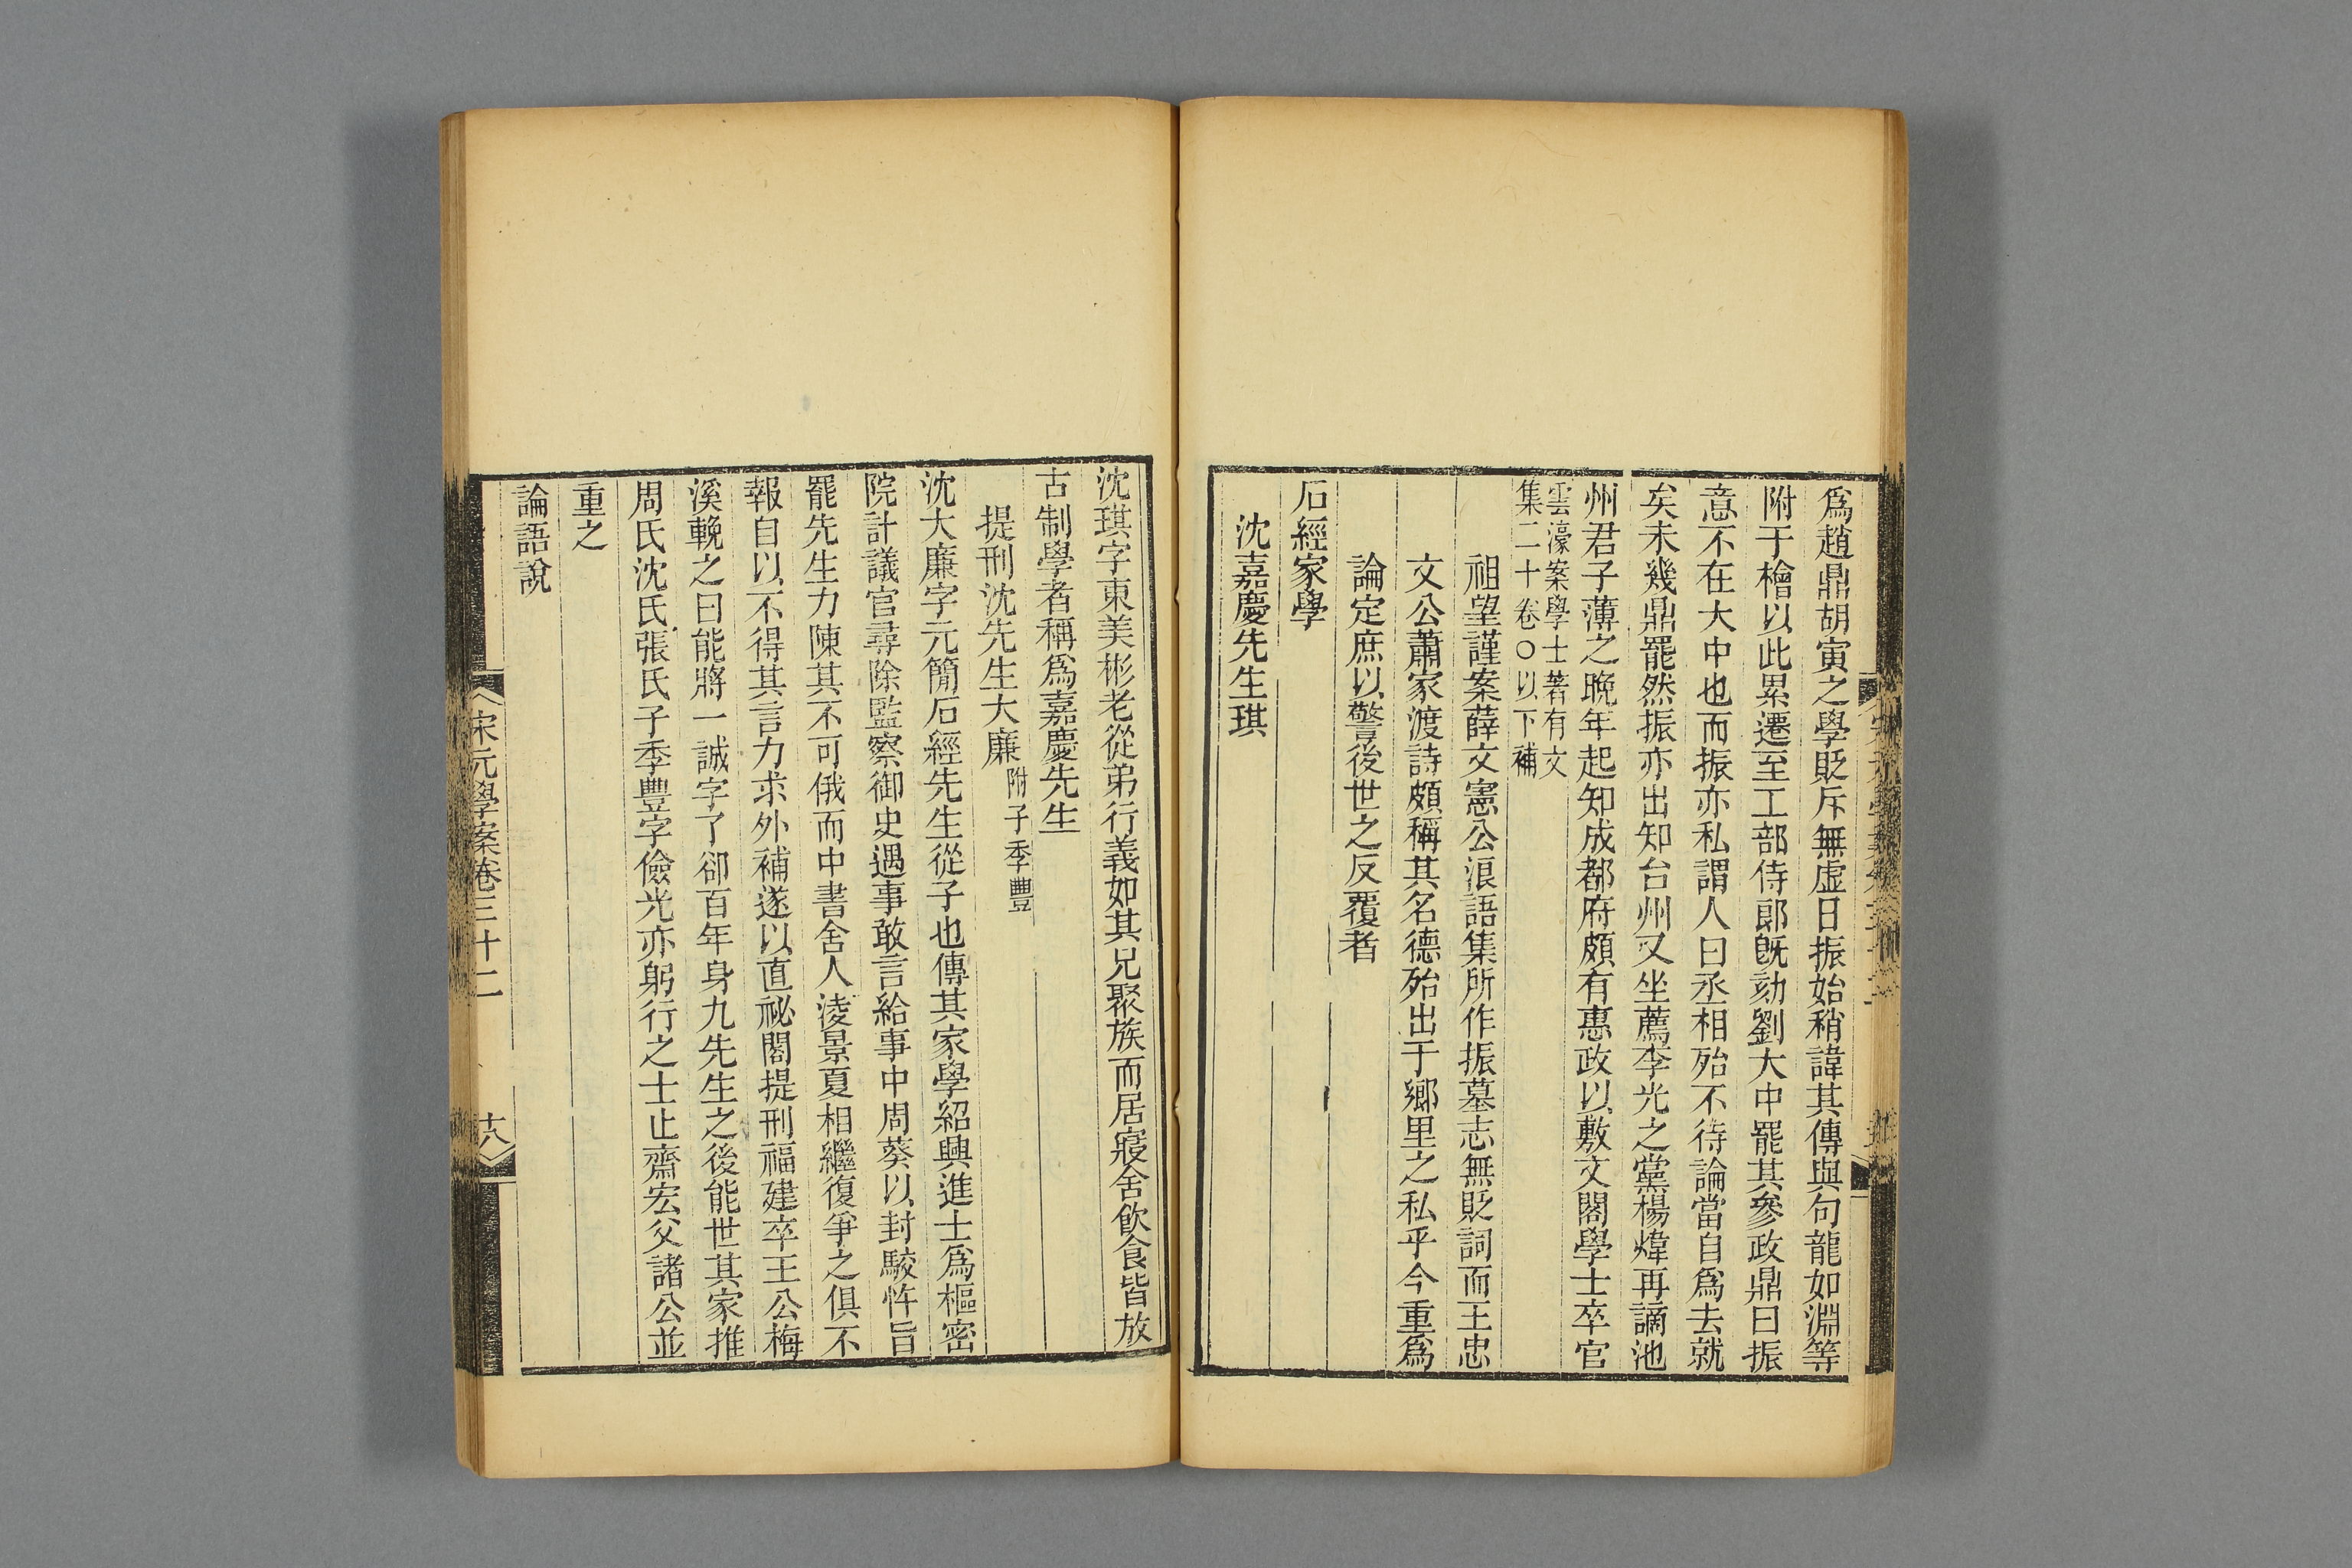 爲趙鼎胡寅之學貶斥無虛日振始稍諱其傳與句龍如淵等
附于檜以此累遷至工部侍郎旣劾劉大中罷其參政鼎曰振
意不在大中也而振亦私謂人曰丞相殆不待論當自爲去就
矣未幾鼎罷然振亦出知台州又坐薦李光之黨楊煒再謫池
州君子薄之晚年起知成都府頗有惠政以敷文閣學士卒官
雲濠案學士著有文
集二十卷○以下補
祖望謹案薛文憲公浪語集所作振墓志無貶詞而王忠
文公蕭家渡詩頗稱其名德殆出于鄉里之私乎今重爲
論定庶以警後世之反覆者
石經家學
沈嘉慶先生琪
沈琪字東美彬老從弟行義如其兄聚族而居寢舍飲食皆放
古制學者稱爲嘉慶先生
提刑沈先生大廉附子季豐
沈大廉字元簡石經先生從子也傳其家學紹興進士爲樞密
院計議官尋除監察御史遇事敢言給事中周葵以封駮忤旨
罷先生力陳其不可俄而中書舍人淩景夏相繼復爭之俱不
報自以不得其言力求外補遂以直祕閣提刑福建卒王公梅
溪輓之曰能將一誠字了卻百年身九先生之後能世其家推
周氏沈氏張氏子季豐字儉光亦躬行之士止齋宏父諸公並
重之
論語說
宋元學案卷三十二
十八